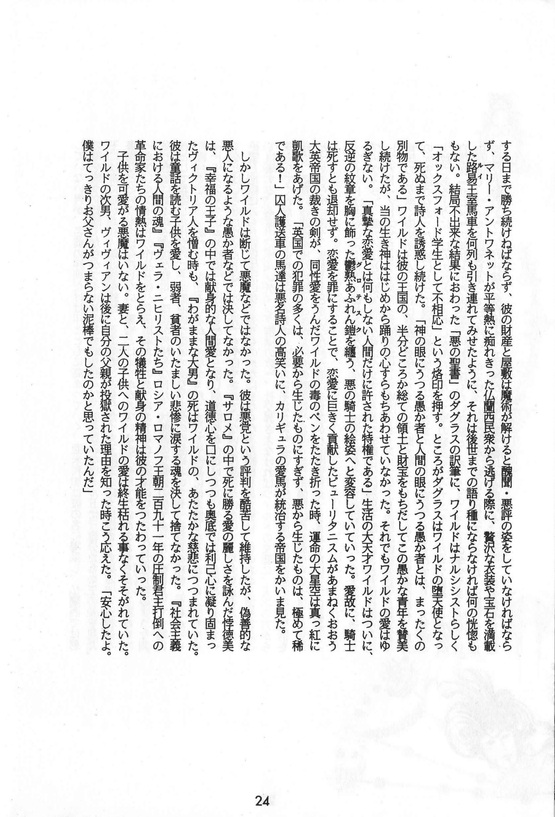 する日まで勝ち続けねばならず、彼の財産と屋敷は魔術が解けると醜聞・悪評の姿をしていなければなら
ず、マリー・アントワネットが平等熱に痴れきった仏蘭西民衆から逃げる際に、贅沢な衣装や宝石を満載
した路易王室馬車を何列も引き連れてみせたように、それは後世までの語り種にならなければ何の恍惚も
もない。結局不出来な結果におわった「悪の聖書」のダグラスの訳筆に、ワイルドはナルシシストらしく
「オックスフォード学生として不相応」という烙印を押す。ところがダグラスはワイルドの堕天使となっ
て、死ぬまで詩人を誘惑し続けた。「神の眼にうつる愚か者と人間の眼にうつる愚か者とは、まったくの
別物である」ワイルドは彼の王国の、半分どころか総ての領土と財宝をもちだしてこの愚かな青年を賛美
し続けたが、当の生き神ははじめから踊りの心すらもちあわせていなかった。それでもワイルドの愛はゆ
るぎない。「真摯な恋愛とは何もしない人間だけに許された特権である」生活の大天才ワイルドはついに、
反逆の紋章を胸に飾った鬱熟あふれん鎧を纏う、悪の騎士の絵姿へと変容していていった。愛故に、騎士
は死すとも退却せず。恋愛を罪にすることで、恋愛に巨きく貢献したピューリタニスムがあまねくおおう
大英帝国の裁きの剣が、同性愛をうんだワイルドの毒のペンをたたき折った時、運命の大星空は真っ紅に
凱歌をあげた。「英国での犯罪の多くは、必要から生じたものにすぎず、悪から生じたものは、極めて稀
である！」囚人護送車の馬達は悪名詩人の高笑いに、カリギュラの愛馬が統治する帝国をかいま見た。
しかしワイルドは断じて悪魔などではなかった。彼は悪党という評判を酷苦して維持したが、偽善的な
悪人になるような愚か者などでは決してなかった。『サロメ』の中で死に勝る愛の麗しさを詠んだ悖徳美
は、『幸福の王子』の中では献身的な人間愛となり、道徳心を口にしつつも奥底では利己心に凝り固まっ
たヴィクトリア人を憎む時も、『わがままな大男』の死はワイルドの、あたたかな慈悲につつまれていた。
彼は童話を読む子供を愛し、弱者、貧者のいたましい悲惨に涙する魂を決して捨てなかった。『社会主義
における人間の魂』『ヴェラ・ニヒリストたち』ロシア・ロマノフ王朝二百九十一年の圧制君主打倒への
革命家たちの情熱はワイルドをとらえ、その犠牲と献身の精神は彼の才能をつたわっていった。
子供を可愛がる悪魔はいない。妻と、二人の子供へのワイルドの愛は終生枯れる事なくそそがれていた。
ワイルドの次男、ヴィヴィアンは後に自分の父親が投獄された理由を知った時こう応えた。「安心したよ。
僕はてっきりお父さんがつまらない泥棒でもしたのかと思っていたんだ」
24